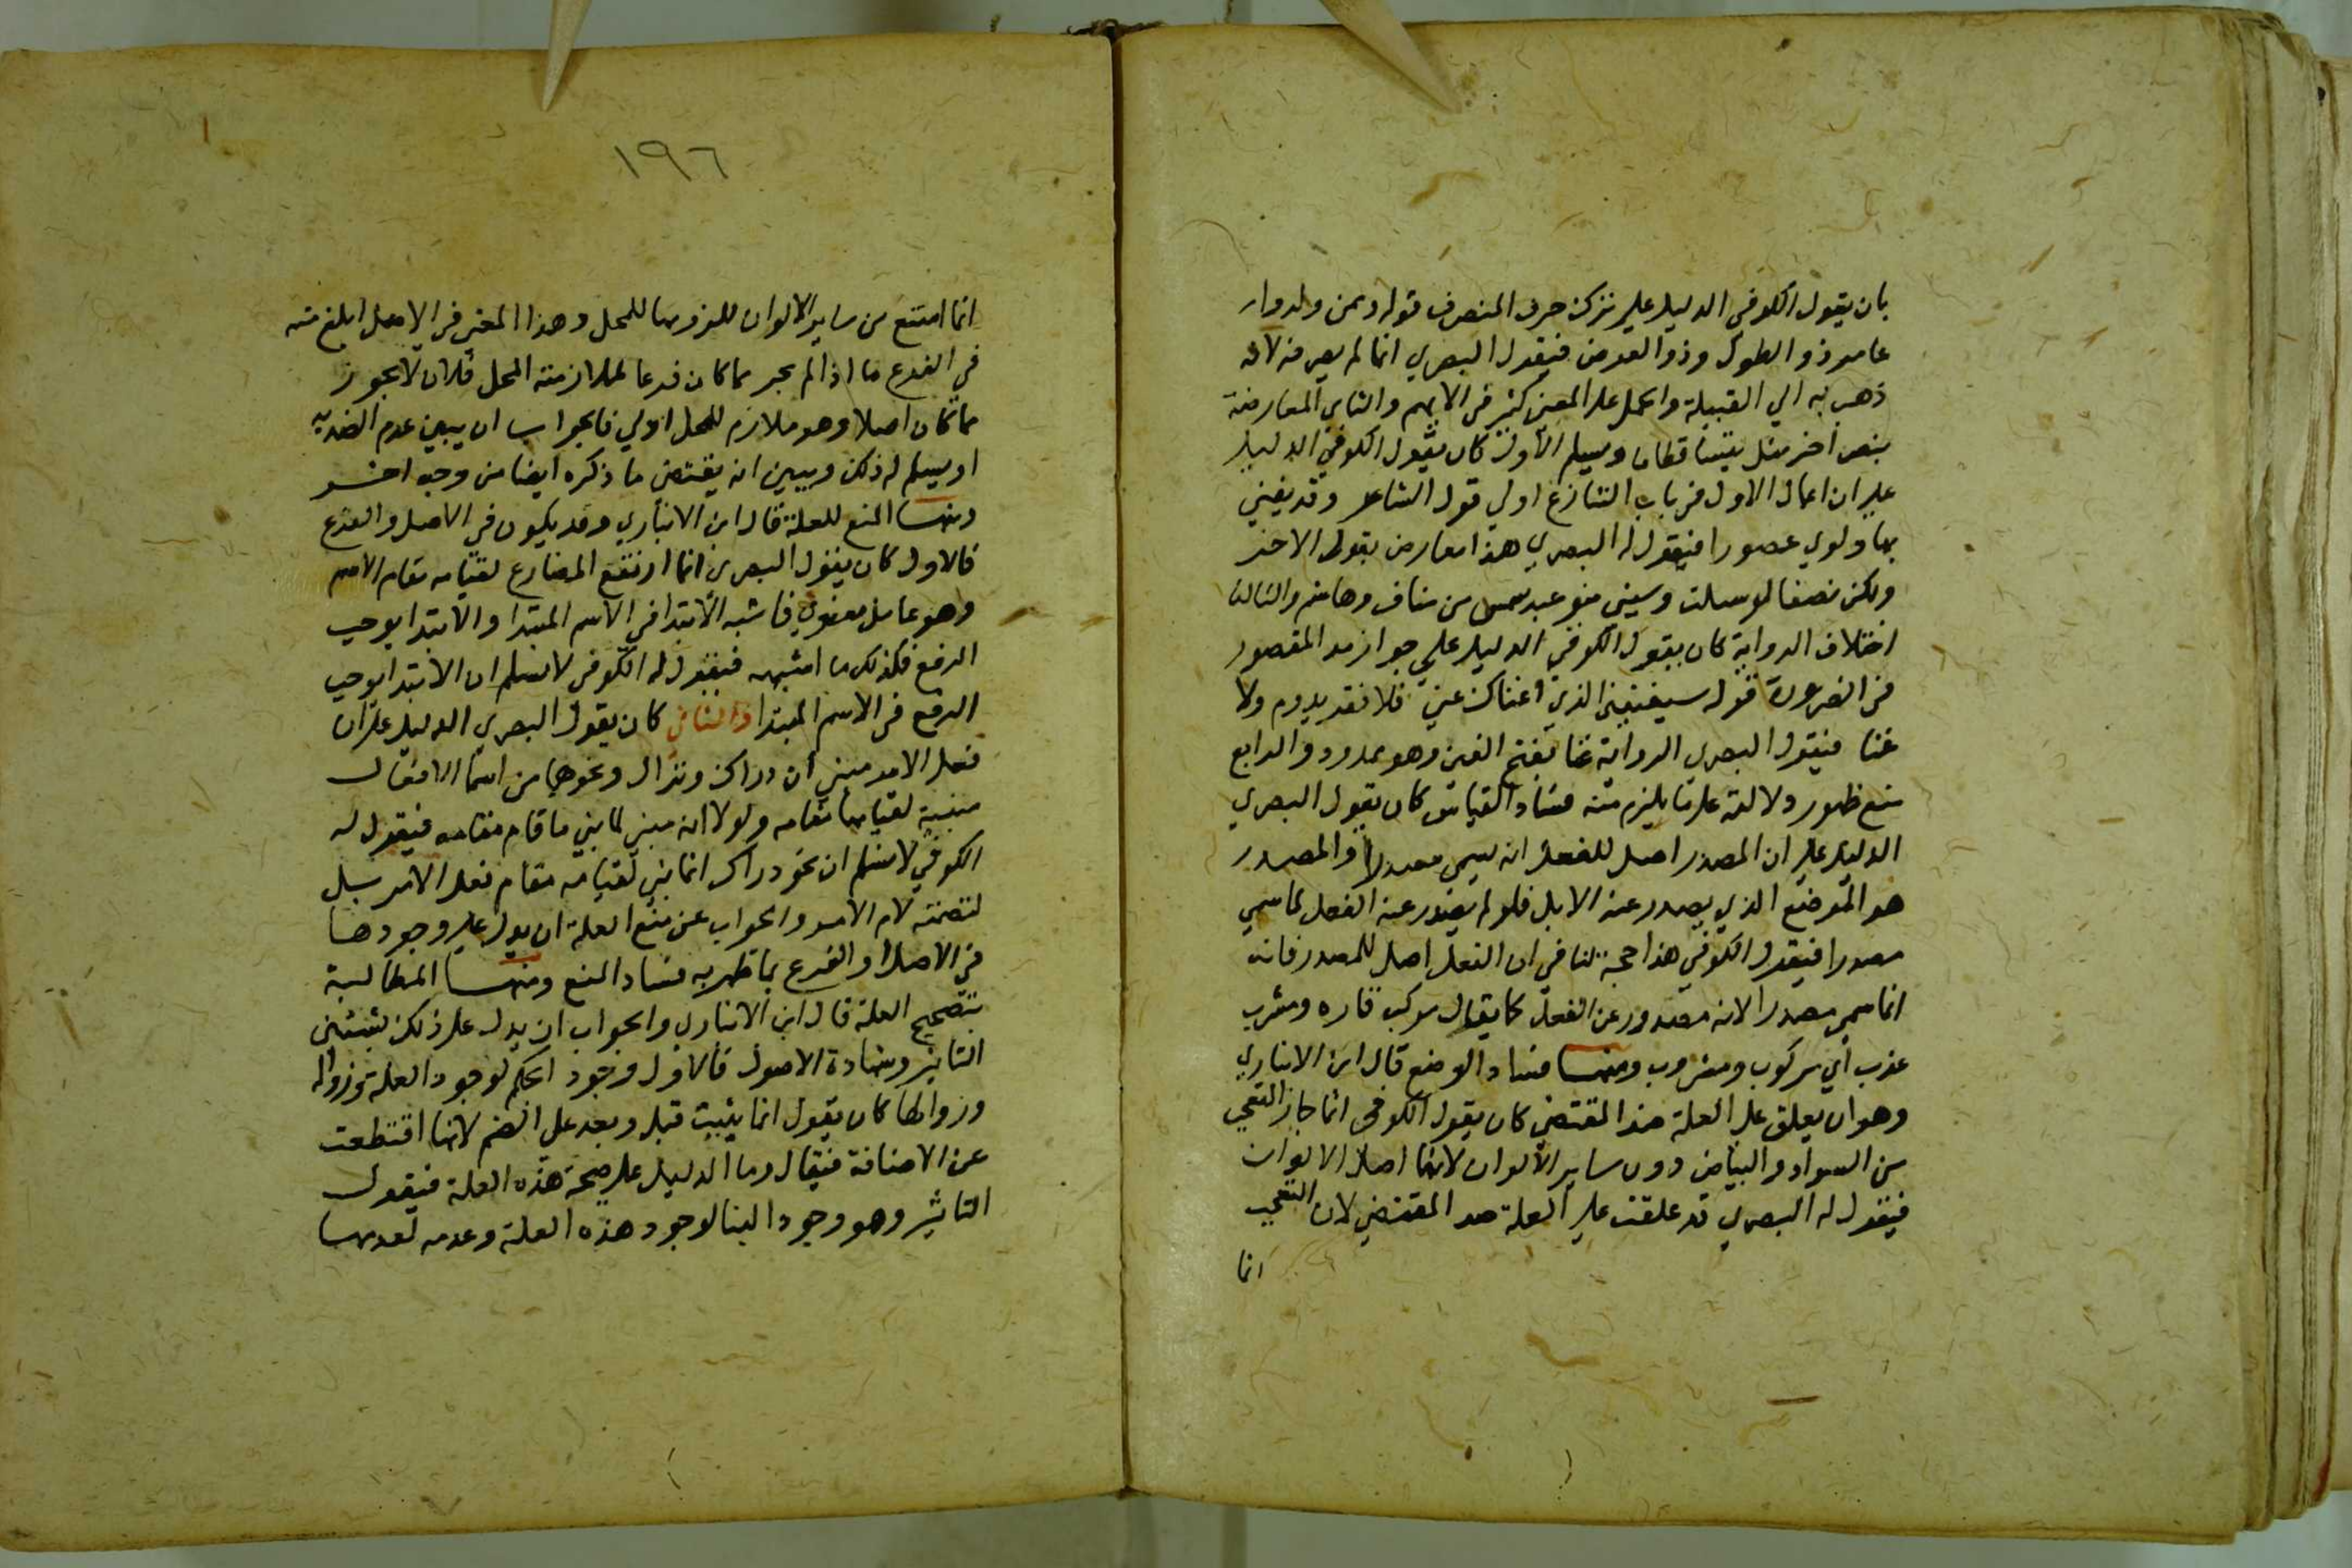 بان يقول الكوفي الدليل علي ترك صرف المنصرف قوله وممن ولدوا
عامر ذو الطول وذو العرض فيقول البصري انما لم يصرفه لانه
ذهب به الي القبيلة والحمل علي المعني كثير في كلامهم والثاني المعارضة
بنص اخر مثله فيتساقطا ويسلم الاول كان يقول الكوفي الدليل
علي ان اعمال الاول في باب التنازع اولي قول الشاعر وقد يغني
بها ونري عصورا فيقول له البصري هذا معارض بقول الاخر
ولكن نصفا لو سببت وسبني بنو عبد شمس من مناف وهاشم والثالث
اختلاف الرواية كان يقول الكوفي الدليل علي جواز مد المقصور
في الضرورة قوله سيغنيني الذي اغناك عني فلا فقر يدوم ولا
غنا فيقول البصري الرواية غنا بفتح الغين وهو ممدود والرابع
منع ظهور دلالته علي ما يلزم منه فساد القياس كان يقول البصري
الدليل علي ان المصدر اصل للفعل انه يسمي مصدرا والمصدر
هو الموضع الذي يصدر عنه الابل فلو لم يصدر عنه الفعل لما سمي
مصدرا فيقول الكوفي هذا حجة لنا في ان الفعل اصل للمصدر فانه
انما سمي مصدرا لانه مصدور عن الفعل كما يقال مركب فاره ومشرب
عذب اي مركوب ومشروب ومنها فساد الوضع قال ابن الانباري
وهو ان يعلق علي العلة ضد المقتضي كان يقول الكوفي انما جاز التعجب
من السواد والبياض دون ساير الالوان لانهما اصلا الالوان
فيقول له البصري قد علقت علي العلة ضد المقتضي لان التعجب
انما
١٩٦
انما امتنع من ساير الالوان للزومها للمحل وهذا المعني في الاصل ابلغ منه
في الفرع فاذا لم يجز مما كان فرعا لملازمته المحل فلان لا يجوز
مما كان اصلا وهو ملازم للمحل اولي فالجواب ان يبين عدم الضدية
او يسلم له ذلك ويبين انه يقتضي ما ذكره ايضا من وجه اخر
ومنها المنع للعلة قال ابن الانباري وقد يكون في الاصل والفرع
فالاول كان يقول البصري انما ارتفع المضارع لقيامه مقام الاسم
وهو عامل معنوي فاشبه الابتدا في الاسم المبتدا والابتدا يوجب
الرفع فكذلك ما اشبهه فيقول له الكوفي لا نسلم ان الابتدا يوجب
الرفع في الاسم المبتدا والثاني كان يقول البصري الدليل علي ان
فعل الامر مبني ان دراك ونزال ونحوهما من اسما الافعال
مبنية لقيامها مقامه ولولا انه مبني لما بني ما قام مقامه فيقول له
الكوفي لا نسلم ان نحو دراك انما بني لقيامه مقام فعل الامر بل
لتضمنه لام الامر والجواب عن منع العلة ان يدل علي وجودها
في الاصل او الفرع بما ظهر به فساد المنع ومنها المطالبة
بتصحيح العلة قال ابن الانباري والجواب ان يدل علي ذلك بشيئين
التاثير وشهادة الاصول فالاول وجود الحكم لوجود العلة وزواله
وزوالها كان يقول انما بنيت قبل وبعد علي الضم لانها اقتطعت
عن الاضافة فيقال وما الدليل علي صحة هذه العلة فيقول
التاثير وهو وجود البنا لوجود هذه العلة وعدمه لعدمها